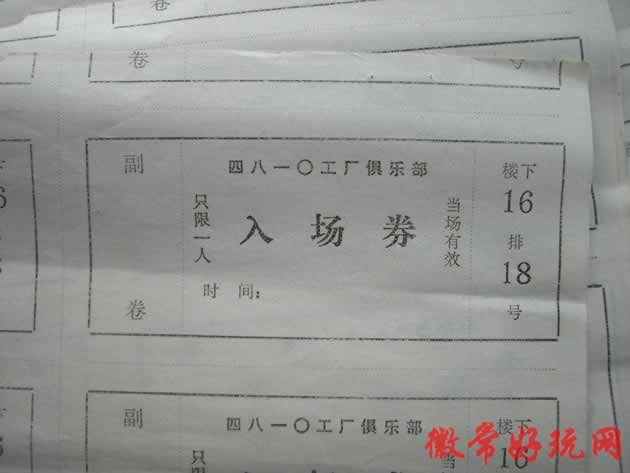 卷
副
卷
四八一〇工厂俱乐部
只限一人
入场券
当场有效
时间：
楼下
16
排
18
号
副
四八一〇工厂俱乐部
只限
当
楼下
16
徽常好玩网